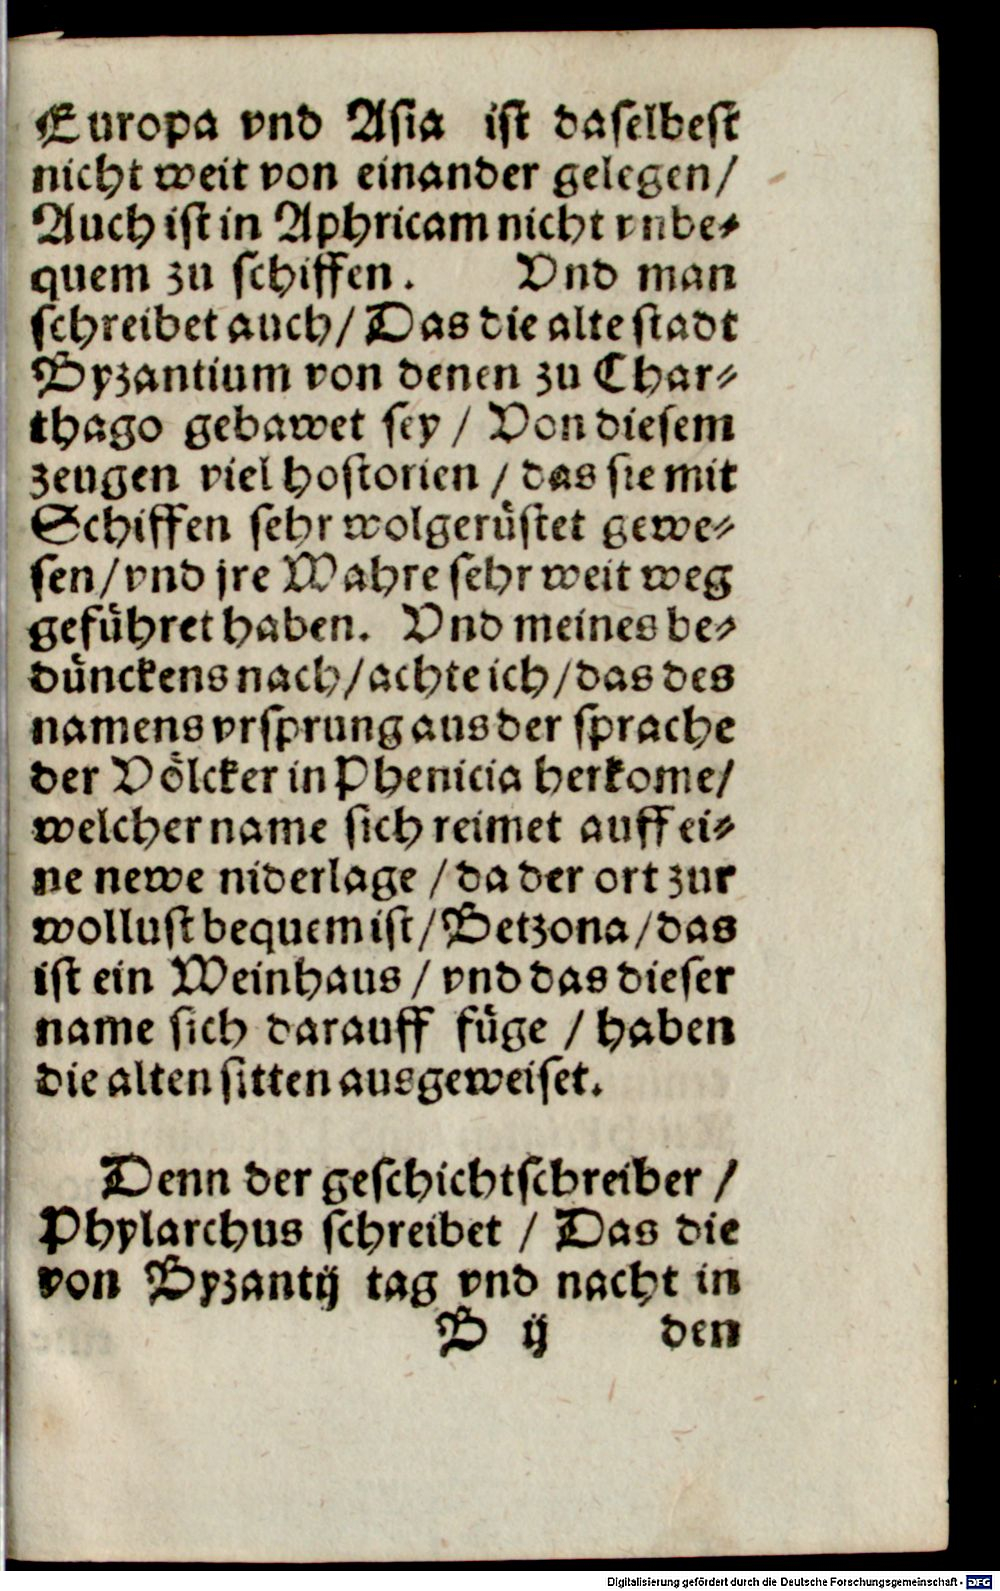 Europa vnd Asia ist daselbest
nicht weit von einander gelegen/
Auch ist in Aphricam nicht vnbe⸗
quem zu schiffen. Vnd man
schreibet auch/ Das die alte stadt
Byzantium von denen zu Char⸗
thago gebawet sey / Von diesem
zeugen viel hostorien / das sie mit
Schiffen sehr wolgerüstet gewe⸗
sen/ vnd jre Wahre sehr weit weg
geführet haben. Vnd meines be⸗
dünckens nach/ achte ich/ das des
namens vrsprung aus der sprache
der Völcker in Phenicia herkome/
welcher name sich reimet auff ei⸗
ne newe niderlage / da der ort zur
wollust bequem ist/ Betzona / das
ist ein Weinhaus / vnd das dieser
name sich darauff füge / haben
die alten sitten ausgeweiset.
Denn der geschichtschreiber /
Phylarchus schreibet / Das die
von Byzantij tag vnd nacht in
B ij den
Digitalisierung gefördert durch die Deutsche Forschungsgemeinschaft - DFG